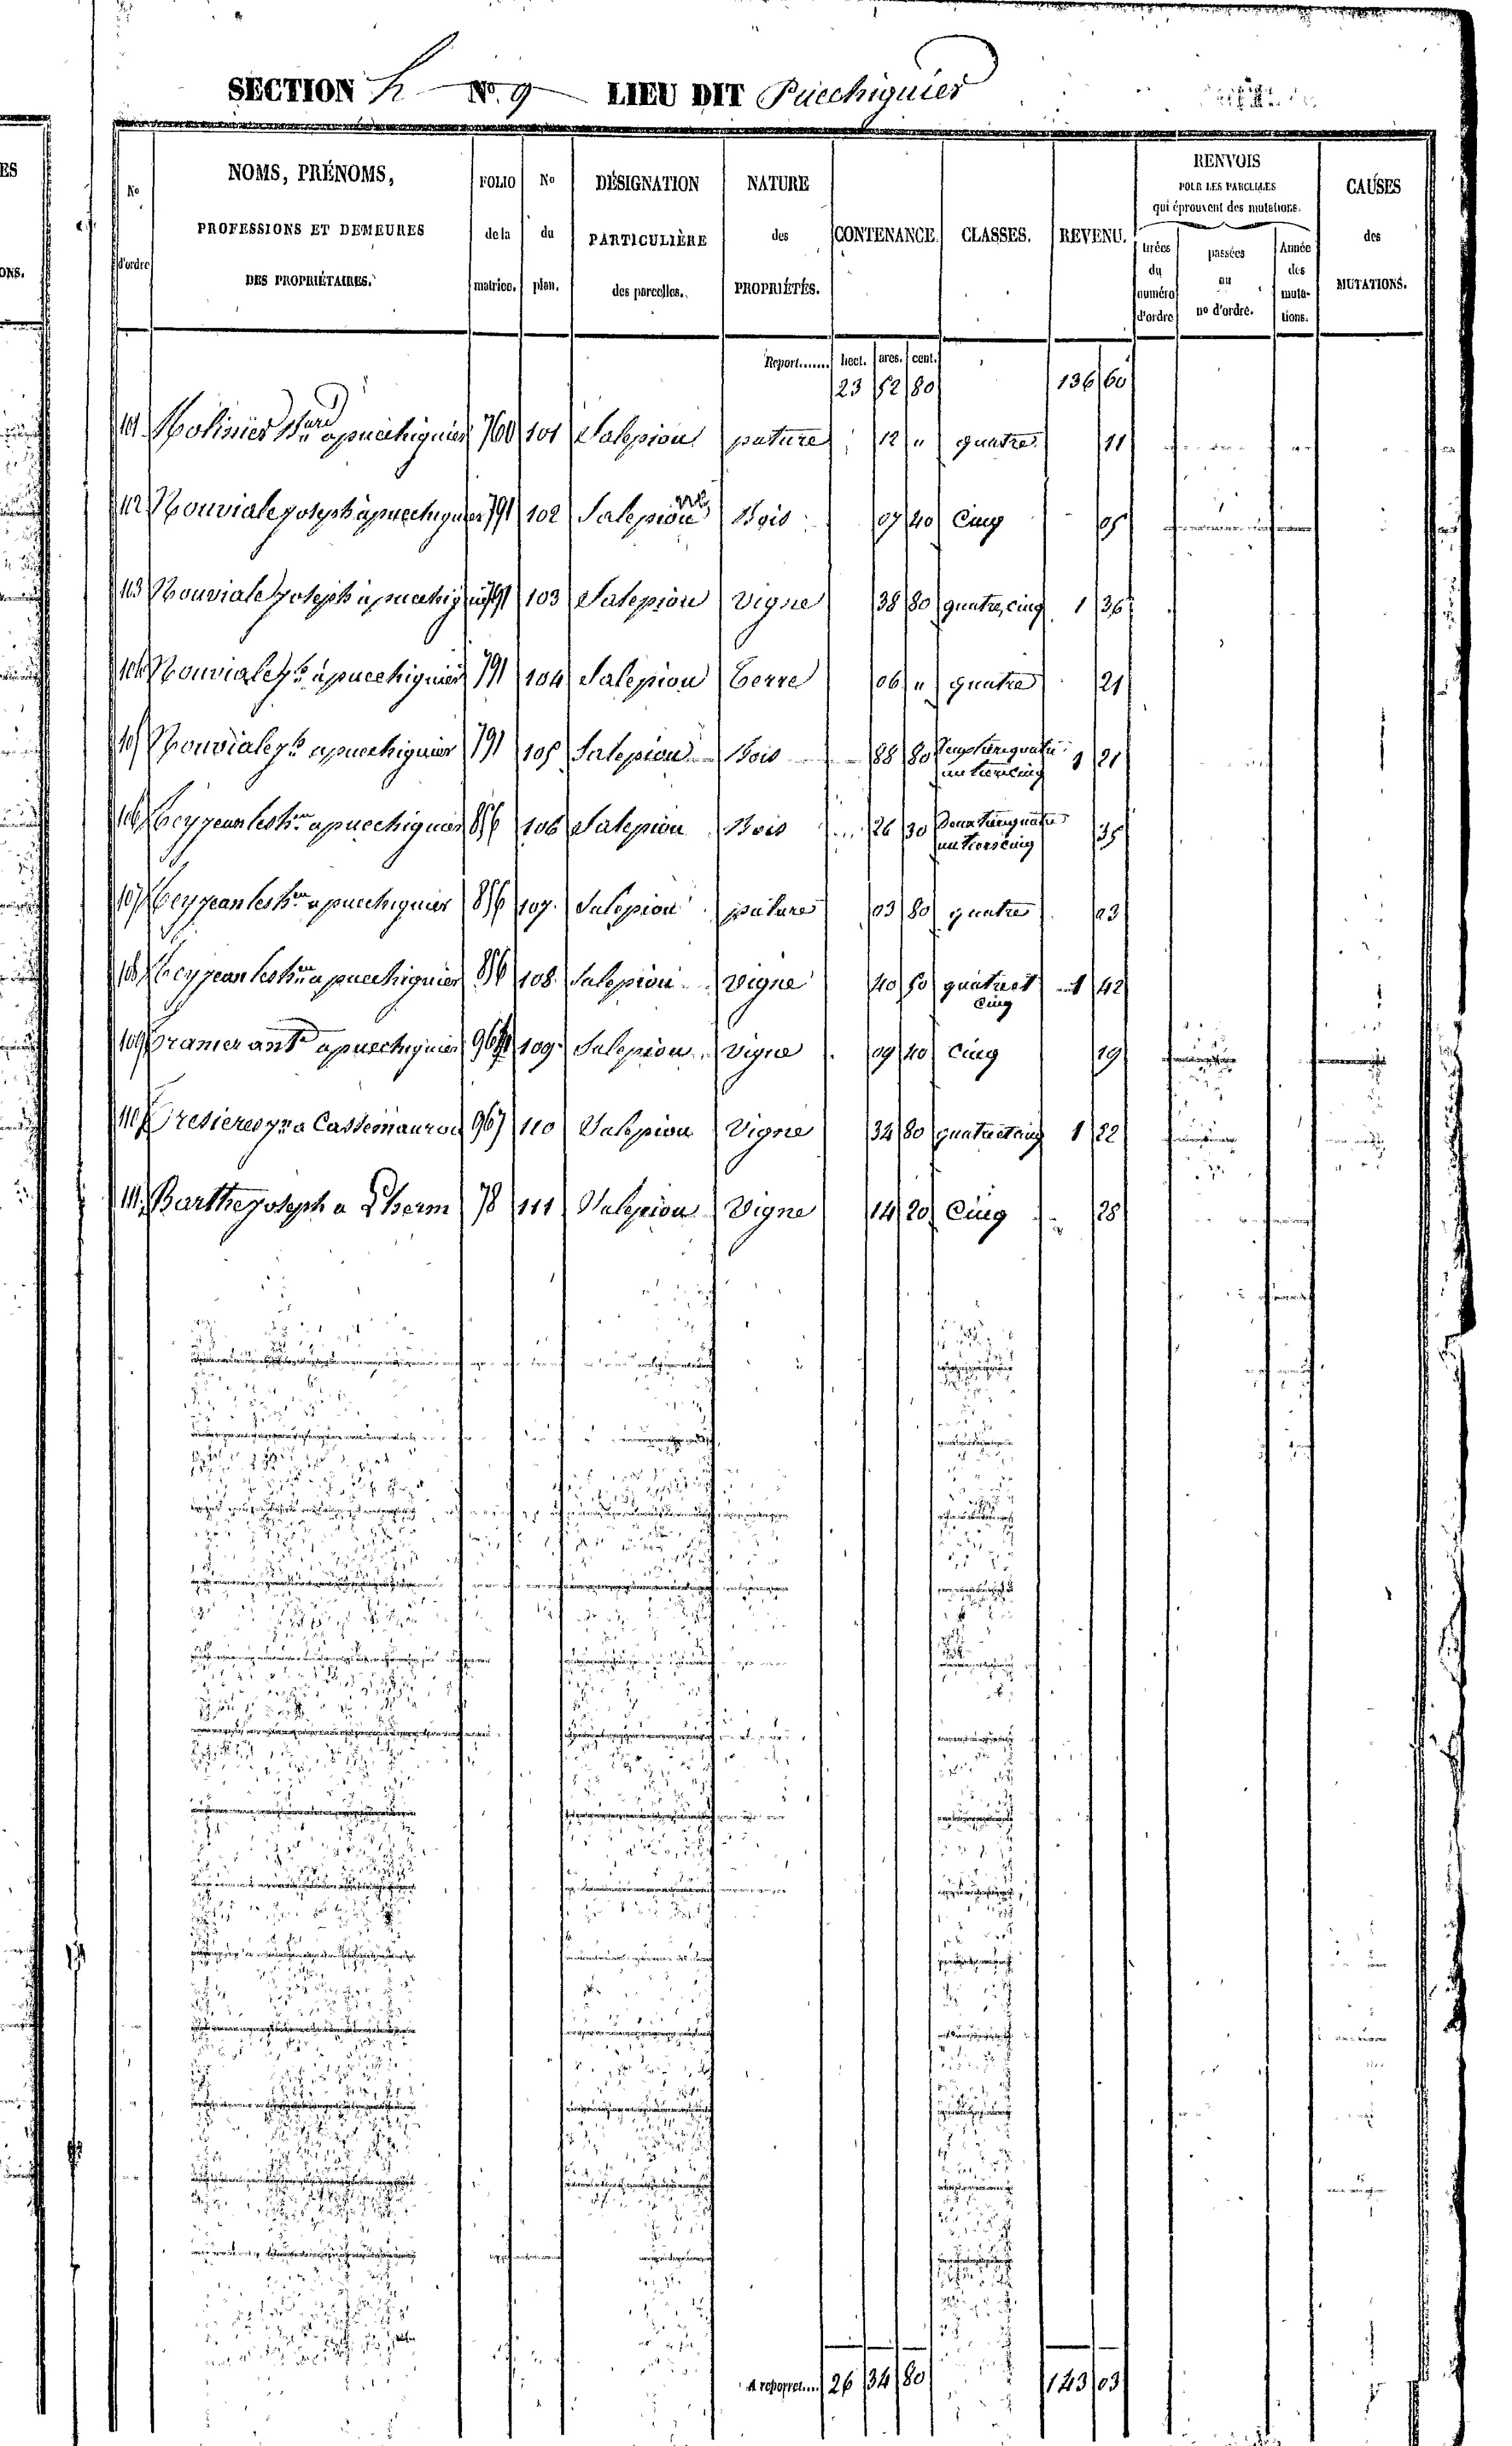 SECTION h N° 9 LIEU DIT Puechiguier
N° d'ordre
NOMS, PRÉNOMS, PROFESSIONS ET DEMEURES DES PROPRIÉTAIRES.
FOLIO de la matrice.
No du plan.
DÉSIGNATION PARTICULIÈRE des parcelles.
NATURE des PROPRIÉTÉS.
CONTENANCE.
CLASSES.
REVENU.
RENVOIS POUR LES PARCELLES qui éprouvent des mutations.
tirées du numéro d'ordre
passées au no d'ordre.
Année des mutations.
CAUSES des MUTATIONS.
Report....... hect. ares. cent.
23 52 80 136 60
101 Molinier apuechiguier 760 101 Salepion pature 12 " quatre 11
102 Nouviale joseph àpuechiguier 791 102 Salepion Bois 07 40 Cinq 05
103 Nouviale joseph apuechiguier 791 103 Salepion Vigne 38 80 quatre, cinq 1 36
104 Nouviale jh apuechiguier 791 104 Salepion Terre 06 " quatre 21
105 Nouviale jh apuechiguier 791 105 Salepion Bois 88 80 quatre un tiers cinq 1 21
106 apuechiguier 856 106 Salepion Bois 26 30 Deux tiers quatre un tiers cinq 35
107 apuechiguier 856 107 Salepion pature 03 80 quatre 03
108 apuechiguier 856 108 Salepion Vigne 40 50 quatre et cinq 1 42
109 ant apuechiguier 109 Salepion Vigne 09 40 Cinq 19
110 a Cassemaurou 967 110 Salepion Vigne 34 80 quatre et cinq 1 22
111 Barthe joseph a Lherm 78 111 Salepion Vigne 14 20 Cinq 28
A reporter.... 26 34 80 143 03